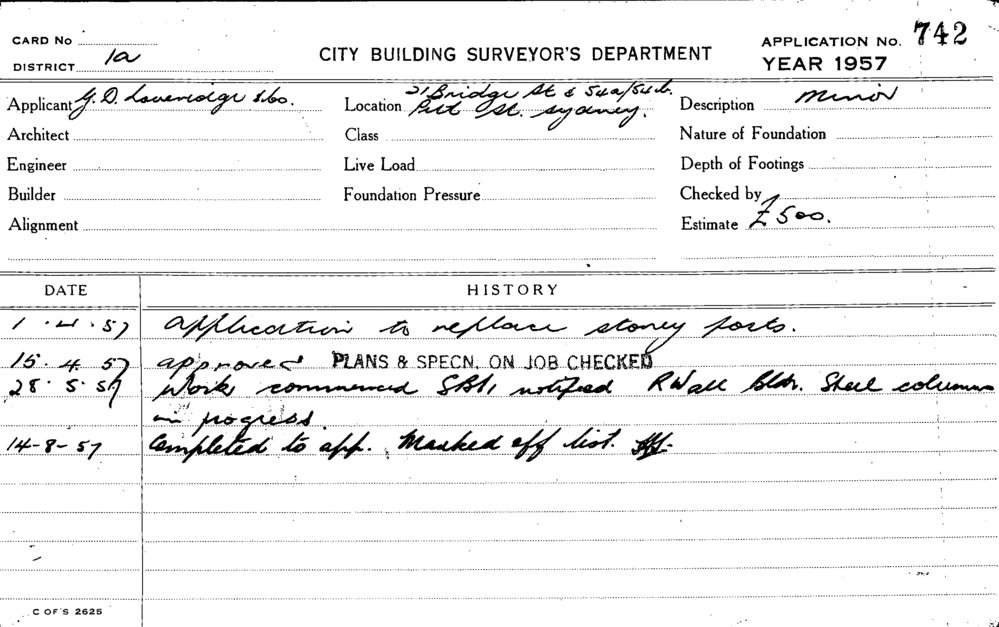 CARD No
DISTRICT 1a
CITY BUILDING SURVEYOR'S DEPARTMENT
APPLICATION No. 742
YEAR 1957
Applicant G. D. Loveridge & Co.
Location 21 Bridge St & 54a/54b.
Pitt St. Sydney.
Description Minor
Architect
Class
Nature of Foundation
Engineer
Live Load
Depth of Footings
Builder
Foundation Pressure
Checked by
Alignment
Estimate £500.
DATE HISTORY
1.4.57 Application to replace storey posts.
15.4.57 approved PLANS & SPECN. ON JOB CHECKED
28.5.57 Work commenced notified R Wall Bldr. Steel columns
in progress.
14-8-57 Completed to app. Marked off list.
C OF S 2625